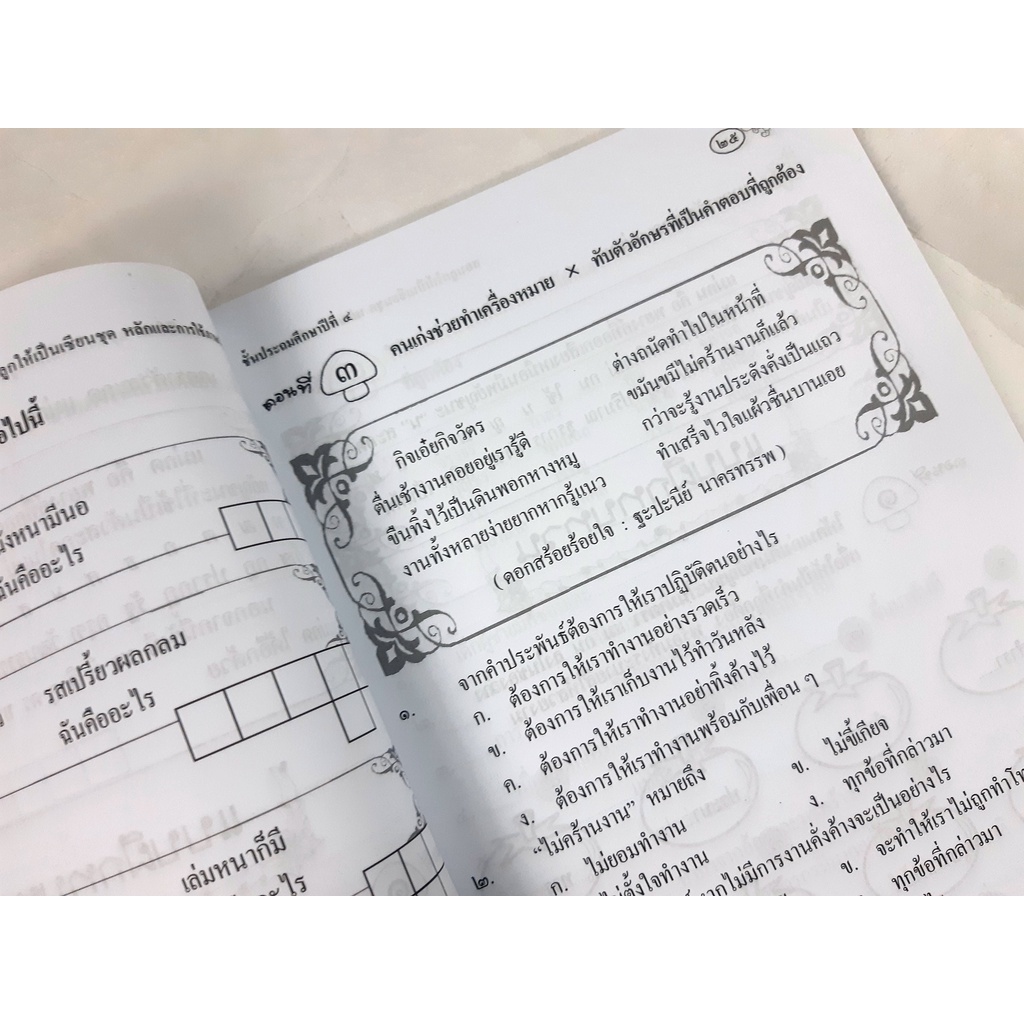 ลูกให้เป็นเซียนชุด หลักและการใช้
อไปนี้
ังหนามีนอ
ฉันคืออะไร
รสเปรี้ยวผลกลม
ฉันคืออะไร
เล่มหนาก็มี
อะไร
๒๕
ชั้นประถมศึกษาปีที่ ๔
ตอนที่ ๓ คนเก่งช่วยทำเครื่องหมาย × ทับตัวอักษรที่เป็นคำตอบที่ถูกต้อง
กิจเอ๋ยกิจวัตร ต่างถนัดทำไปในหน้าที่
ตื่นเช้างานคอยอยู่เรารู้ดี ขมันขมีไม่คร้านงานก็แล้ว
ขืนทิ้งไว้เป็นดินพอกหางหมู กว่าจะรู้งานประดังคั่งเป็นแถว
งานทั้งหลายง่ายยากหากรู้แนว ทำเสร็จไวใจแผ้วชื่นบานเอย
(ดอกสร้อยร้อยใจ : ฐะปะนีย์ นาครทรรพ)
๑. จากคำประพันธ์ต้องการให้เราปฏิบัติตนอย่างไร
ก. ต้องการให้เราทำงานอย่างรวดเร็ว
ข. ต้องการให้เราเก็บงานไว้ทำวันหลัง
ค. ต้องการให้เราทำงานอย่าทิ้งค้างไว้
ง. ต้องการให้เราทำงานพร้อมกับเพื่อน ๆ
๒. “ไม่คร้านงาน” หมายถึง
ก. ไม่ยอมทำงาน ข. ไม่ขี้เกียจ
ไม่ตั้งใจทำงาน ง. ทุกข้อที่กล่าวมา
ากไม่มีการงานคั่งค้างจะเป็นอย่างไร
ข. จะทำให้เราไม่ถูกทำโท
ทุกข้อที่กล่าวมา